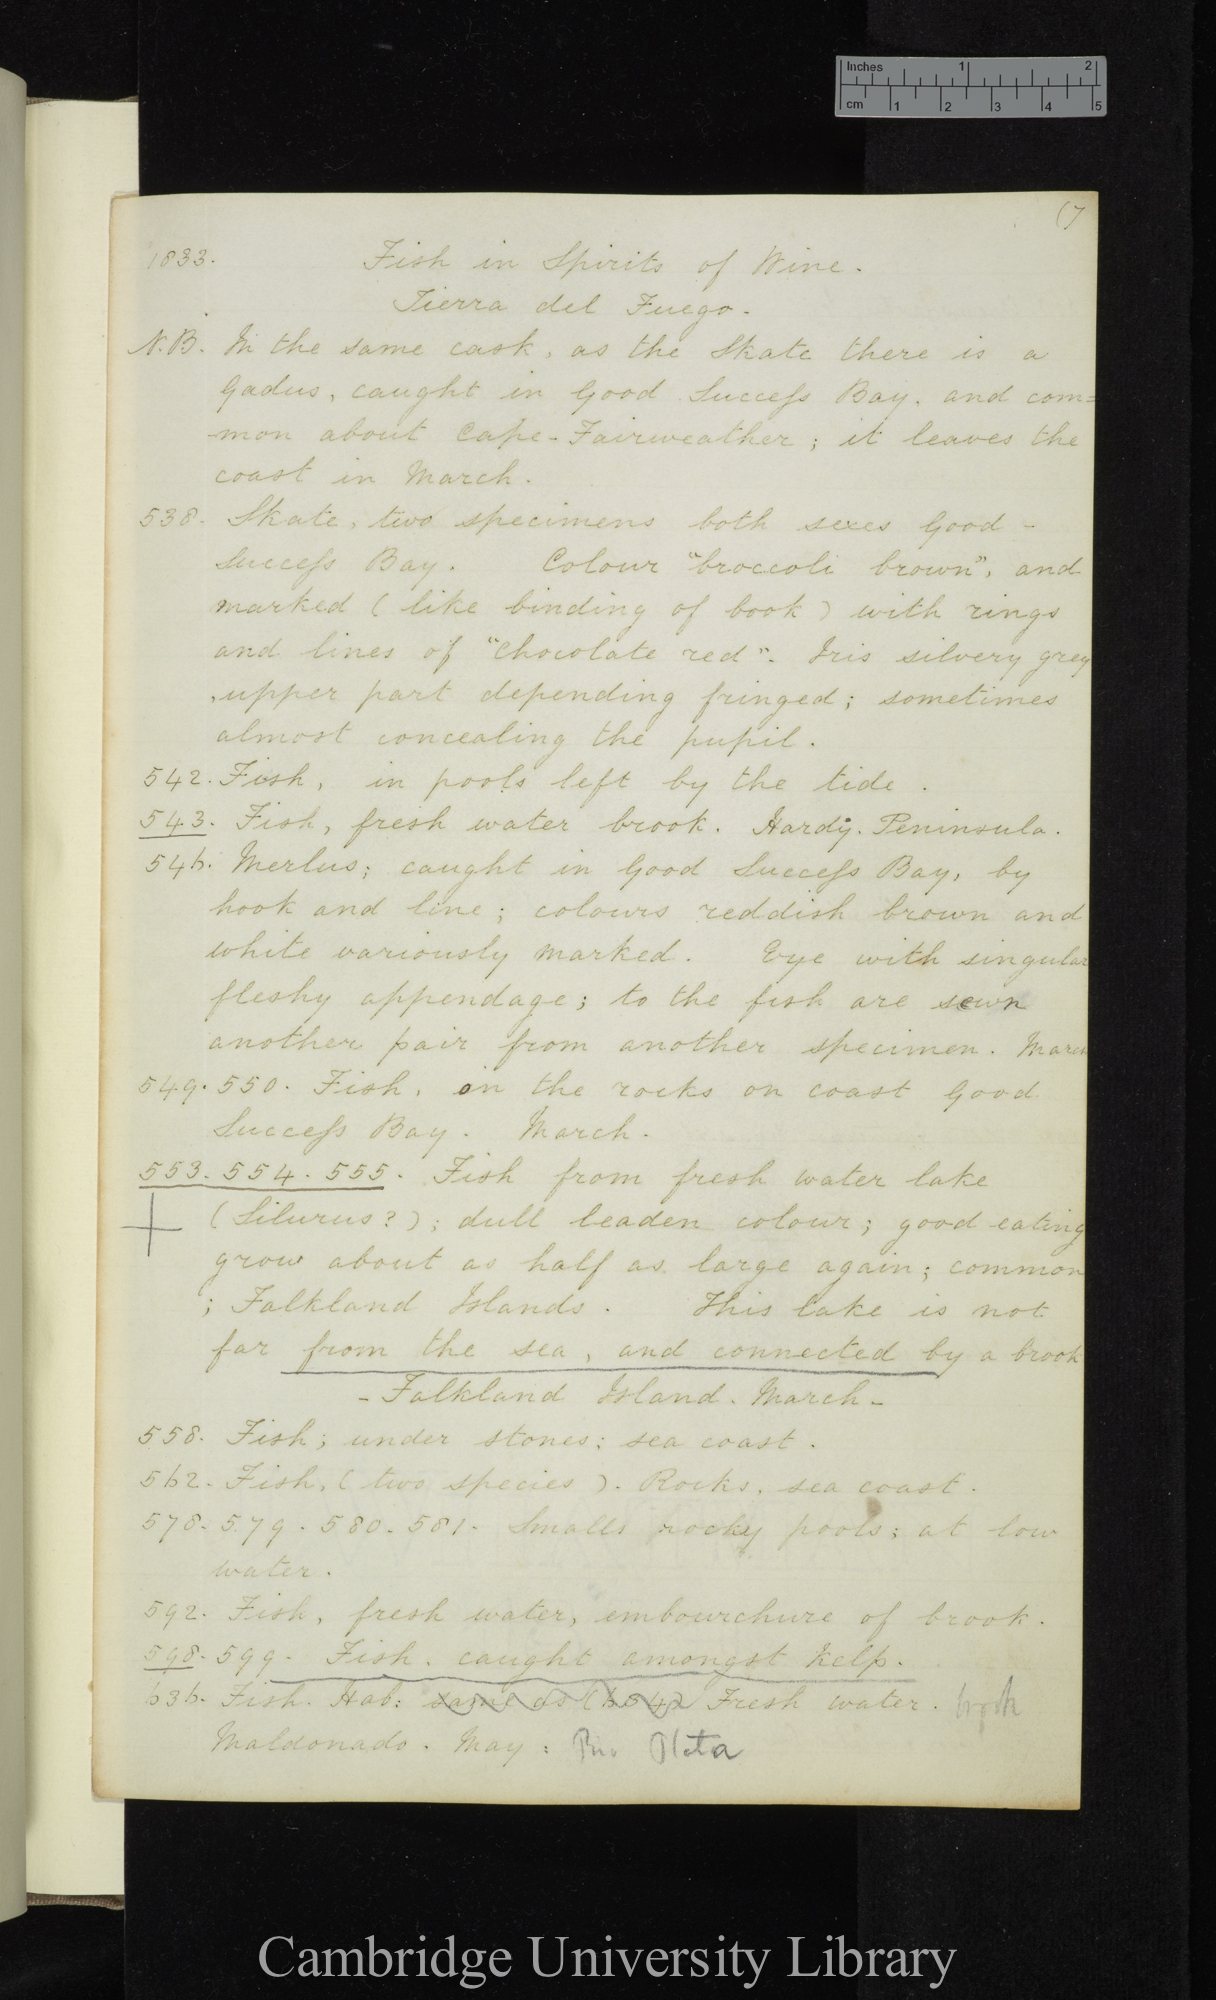 Inches 1 2
cm 1 2 3 4 5
(7
1833. Fish in Spirits of Wine.
Tierra del Fuego.
N.B. In the same cask, as the Skate there is a
Gadus, caught in Good Success Bay, and com=
mon about Cape-Fairweather; it leaves the
coast in March.
538. Skate, two specimens both sexes Good-
Success Bay. Colour "broccoli brown", and
marked (like binding of book) with rings
and lines of "chocolate red". Iris silvery grey
, upper part depending fringed; sometimes
almost concealing the pupil.
542. Fish, in pools left by the tide.
543. Fish, fresh water brook. Hardy. Peninsula.
546. Merlus; caught in Good Success Bay, by
hook and line; colours reddish brown and
white variously marked. Eye with singular
fleshy appendage; to the fish are sewn
another pair from another specimen. March
549. 550. Fish, on the rocks on coast Good
Success Bay. March.
553. 554. 555. Fish from fresh water lake
(Silurus?); dull leaden colour; good eating
grow about as half as large again; common
; Falkland Islands. This lake is not
far from the sea, and connected by a brook
- Falkland Island. March -
558. Fish; under stones; sea coast.
562. Fish, (two species). Rocks, sea coast.
578. 579. 580. 581. Smalls rocky pools; at low
water.
592. Fish, fresh water, embourchure of brook.
598. 599. Fish, caught amongst Kelp.
636. Fish. Hab: same as Fresh water. brook
Maldonado. May: Rio Plata
Cambridge University Library